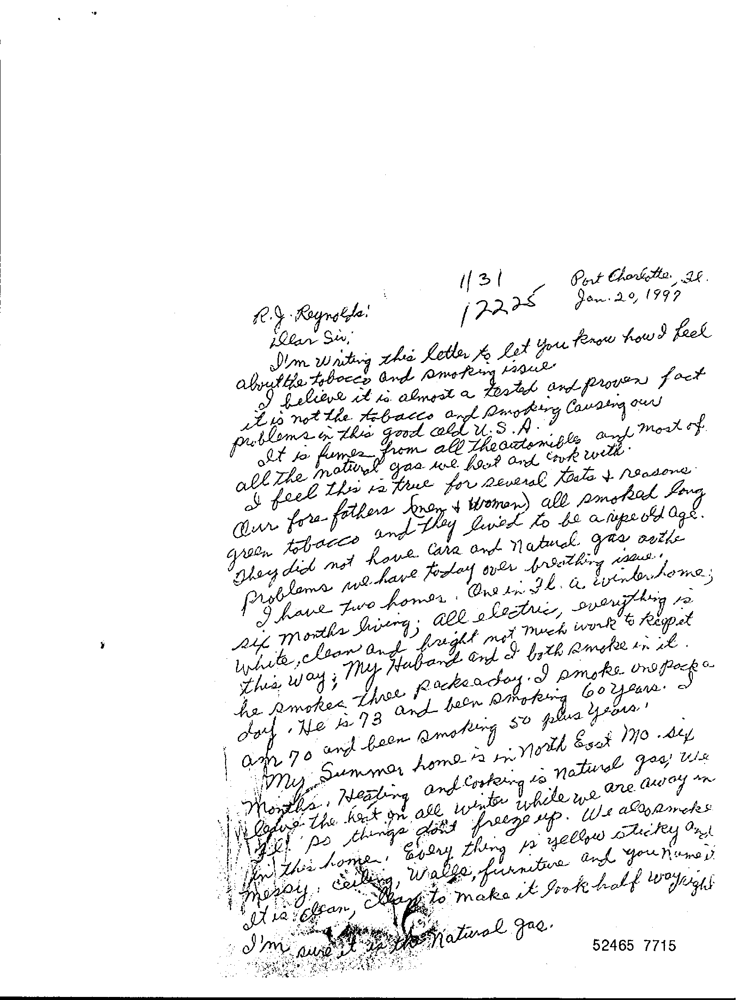 1/31
12225
Port Charlotte, Fl.
Jan. 20, 1997
R.J. Reynolds:
Dear Sir;
I'm writing this letter to let you know how I feel
about the tobacco and smoking issue.
I believe it is almost a tested and proven fact
it is not the tobacco and smoking causing our
problems in this good old U.S.A.
It is fumes from all the automibles and most of
all the natural gas we heat and cook with.
I feel this is true for several tests & reasons.
Our fore fathers (men & women) all smoked long
green tobacco and they lived to be a ripe old age.
They did not have cars and natural gas or the
problems we have today over breathing issue.
I have two homes. One in Fl. a winter home;
six months living; all electric, everything is
white, clean and bright not much work to keep it
this way; My Huband and I both smoke in it.
he smokes three packs a day. I smoke one pack a
day. He is 73 and been smoking 60 years. I
am 70 and been smoking 50 plus years.
My Summer home is in North East Mo. six
months. Heating and cooking is natural gas; We
leave the heat on all winter while we are away in
Fl. so things don't freeze up. We also smoke
in this home. Every thing is yellow sticky and
messy. ceiling, walls, furniture and you name it.
It is clean, clean to make it look half way right
I'm sure it is the natural gas.
52465 7715